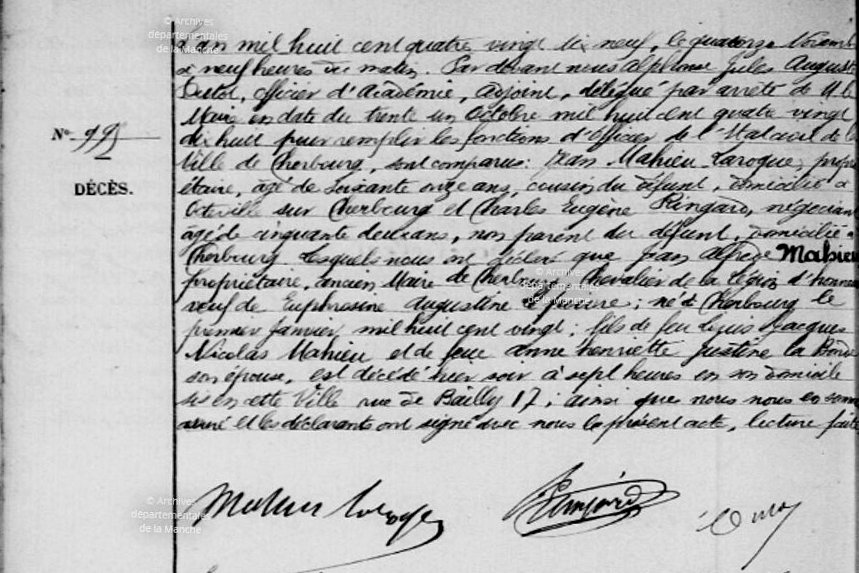 L'an mil huit cent quatre vingt dix neuf, le quatorze Novemb
à neuf heures du matin. Par devant nous Alphonse Jules August
officier d'Académie, adjoint, délégué par arrêté de M. le
Maire en date du trente un Octobre mil huit cent quatre vingt
dix huit pour remplir les fonctions d'Officier de l'Etat civil de la
Ville de Cherbourg, sont comparus: Jean Mahieu Laroque, propri
étaire, âgé de soixante onze ans, cousin du défunt, domicilié à
Octeville sur Cherbourg et Charles Eugène Ringard, négociant
âgé de cinquante deux ans, non parent du défunt, domicilié à
Cherbourg lesquels nous ont déclaré que Jean Alfred Mahieu
propriétaire, ancien Maire de Cherbourg, Chevalier de la Légion d'honne
veuf de Euphrosine Augustine ; né à Cherbourg le
premier Janvier, mil huit cent vingt; fils de feu Louis Jacques
Nicolas Mahieu et de feue Anne henriette justine la
son épouse, est décédé hier soir à sept heures en son domicile
sis en cette Ville rue de Bailly 17; ainsi que nous nous en som
assuré et les déclarants ont signé avec nous le présent acte, lecture faite
N° 995
DÉCÈS.
Mahieu Laroque Ringard
© Archives
départementales
de la Manche
© Archives
départementales
de la Manche
© Archives
départementales
de la Manche